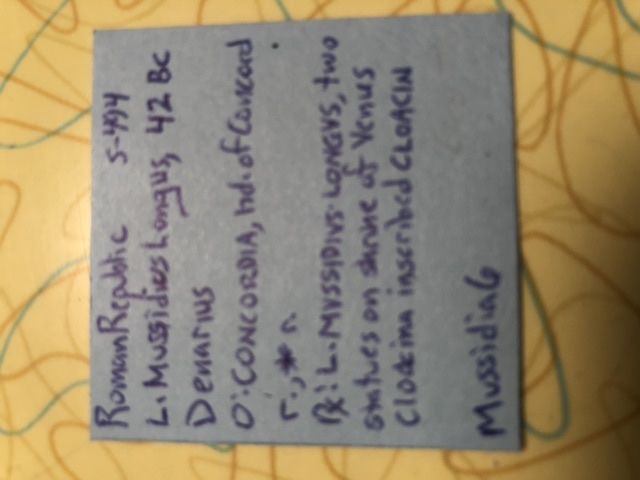 Roman Republic S-494
L. Mussidius Longus, 42 BC
Denarius
O: CONCORDIA, hd. of Concord
r., * r.
Rx: L. MVSSIDIVS LONGVS, two
statues on shrine of Venus
Cloacina inscribed CLOACIN
Mussidia 6